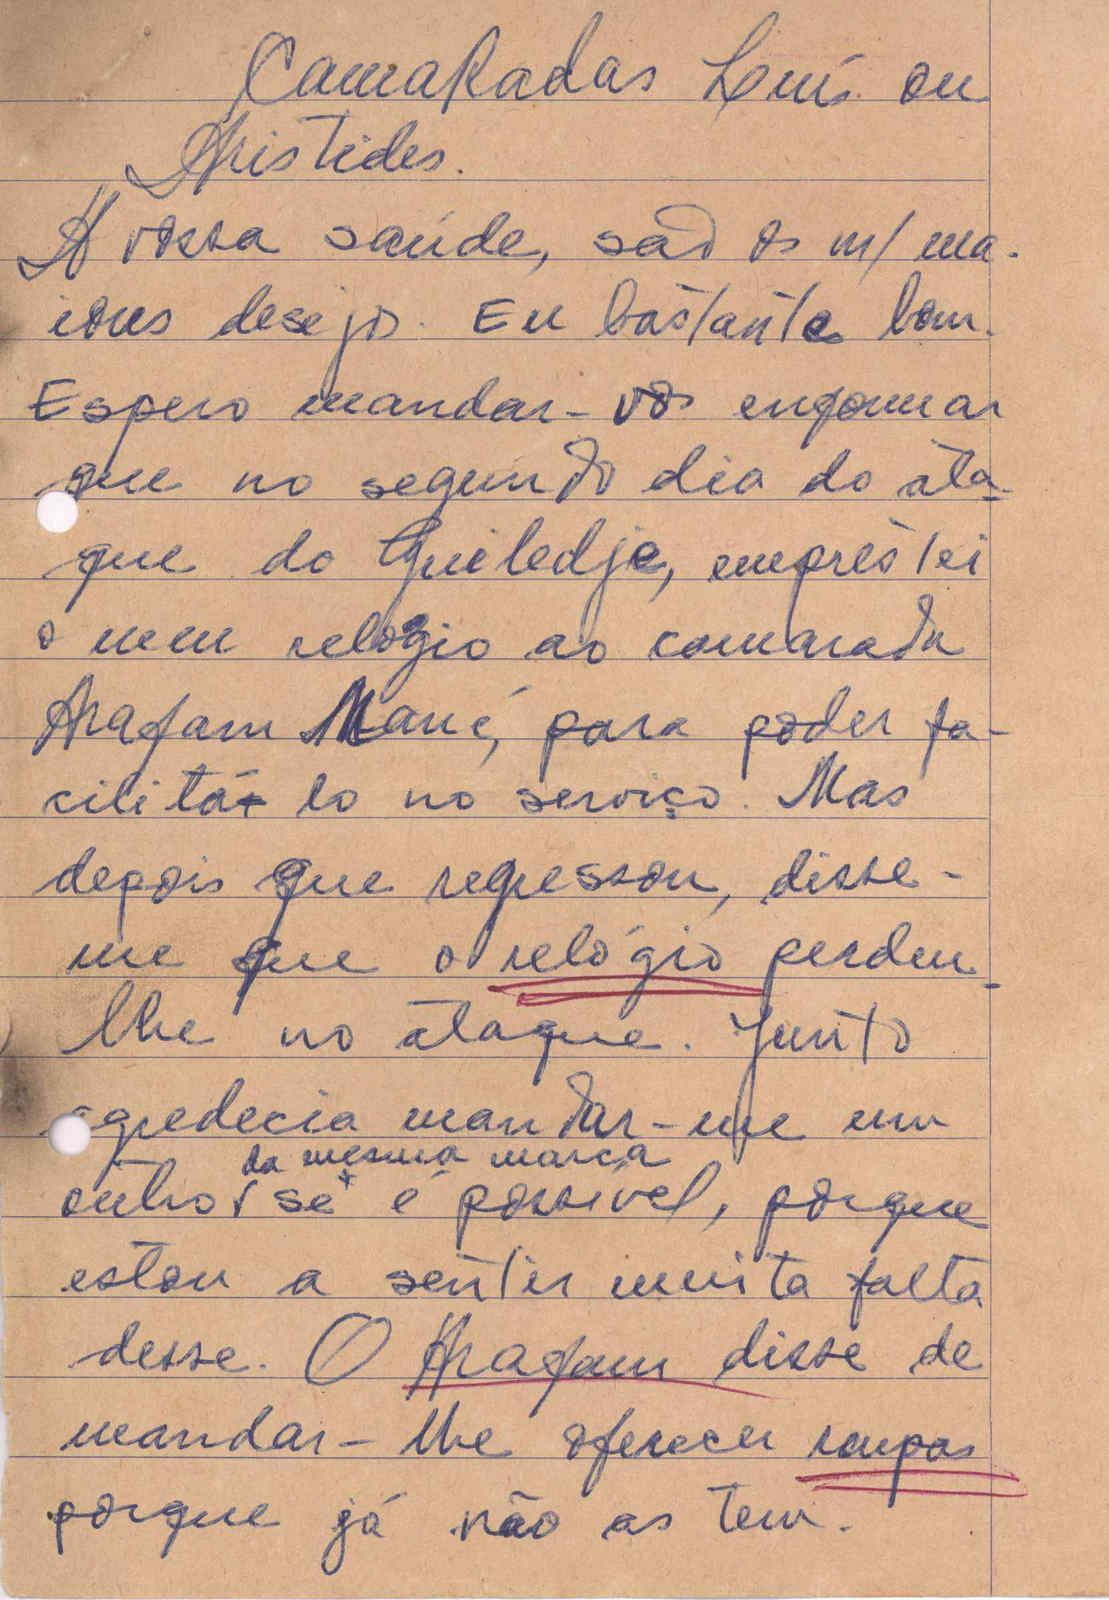 Camaradas Luís ou
Aristides.
A vossa saúde, são os m/ ma-
iores desejos. Eu bastante bom.
Espero mandar-vos enformar
que no segundo dia do ata-
que do Guiledje, emprestei
o meu relógio ao camarada
Arafam Mané, para poder fa-
cilitá-lo no serviço. Mas
depois que regressou, disse-
me que o relógio perdeu-
lhe no ataque. Junto
agredecia mandar-me um
da mesma marca
outro se é possível, porque
estou a sentir muita falta
desse. O Arafam disse de
mandar-lhe oferecer roupas
porque já não as tem.